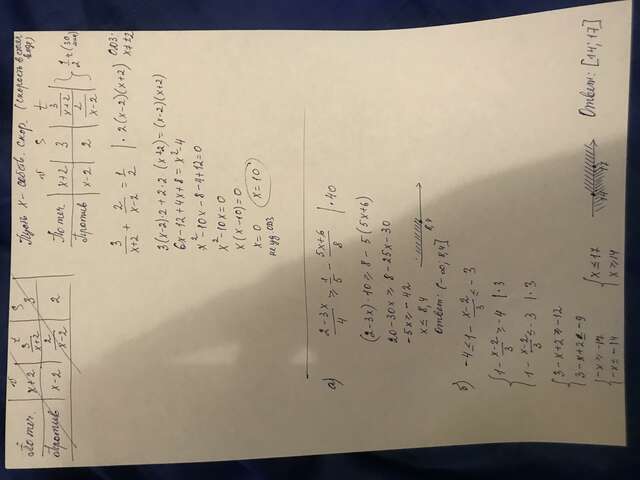 По теч. | x+2 | 3/(x+2) | 3
Против | x-2 | 2/(x-2) | 2
Пусть x - собств. скор. (скорость в стоячей воде)
v S t
По теч. | x+2 | 3 | 3/(x+2)
Против | x-2 | 2 | 2/(x-2)
1/2 ч (30 мин)
3/(x+2) + 2/(x-2) = 1/2 | · 2(x-2)(x+2)
ОДЗ:
x≠±2
3(x-2)·2+2·2(x+2)=(x-2)(x+2)
6x-12+4x+8=x²-4
x²-10x-8-4+12=0
x²-10x=0
x(x-10)=0
x=0 x=10
неуд ОДЗ
а) (2-3x)/4 ≥ 1/5 - (5x+6)/8 | ·40
(2-3x)·10≥8-5(5x+6)
20-30x≥8-25x-30
-5x≥-42
x≤8,4
8,4
Ответ: (-∞; 8,4]
б) -4≤1-(x-2)/3≤-3
{1-(x-2)/3≥-4 |·3
1-(x-2)/3≤-3 |·3
{3-x+2≥-12
3-x+2≤-9
{-x≥-17
-x≤-14
{x≤17
x≥14
14 17
Ответ: [14; 17]